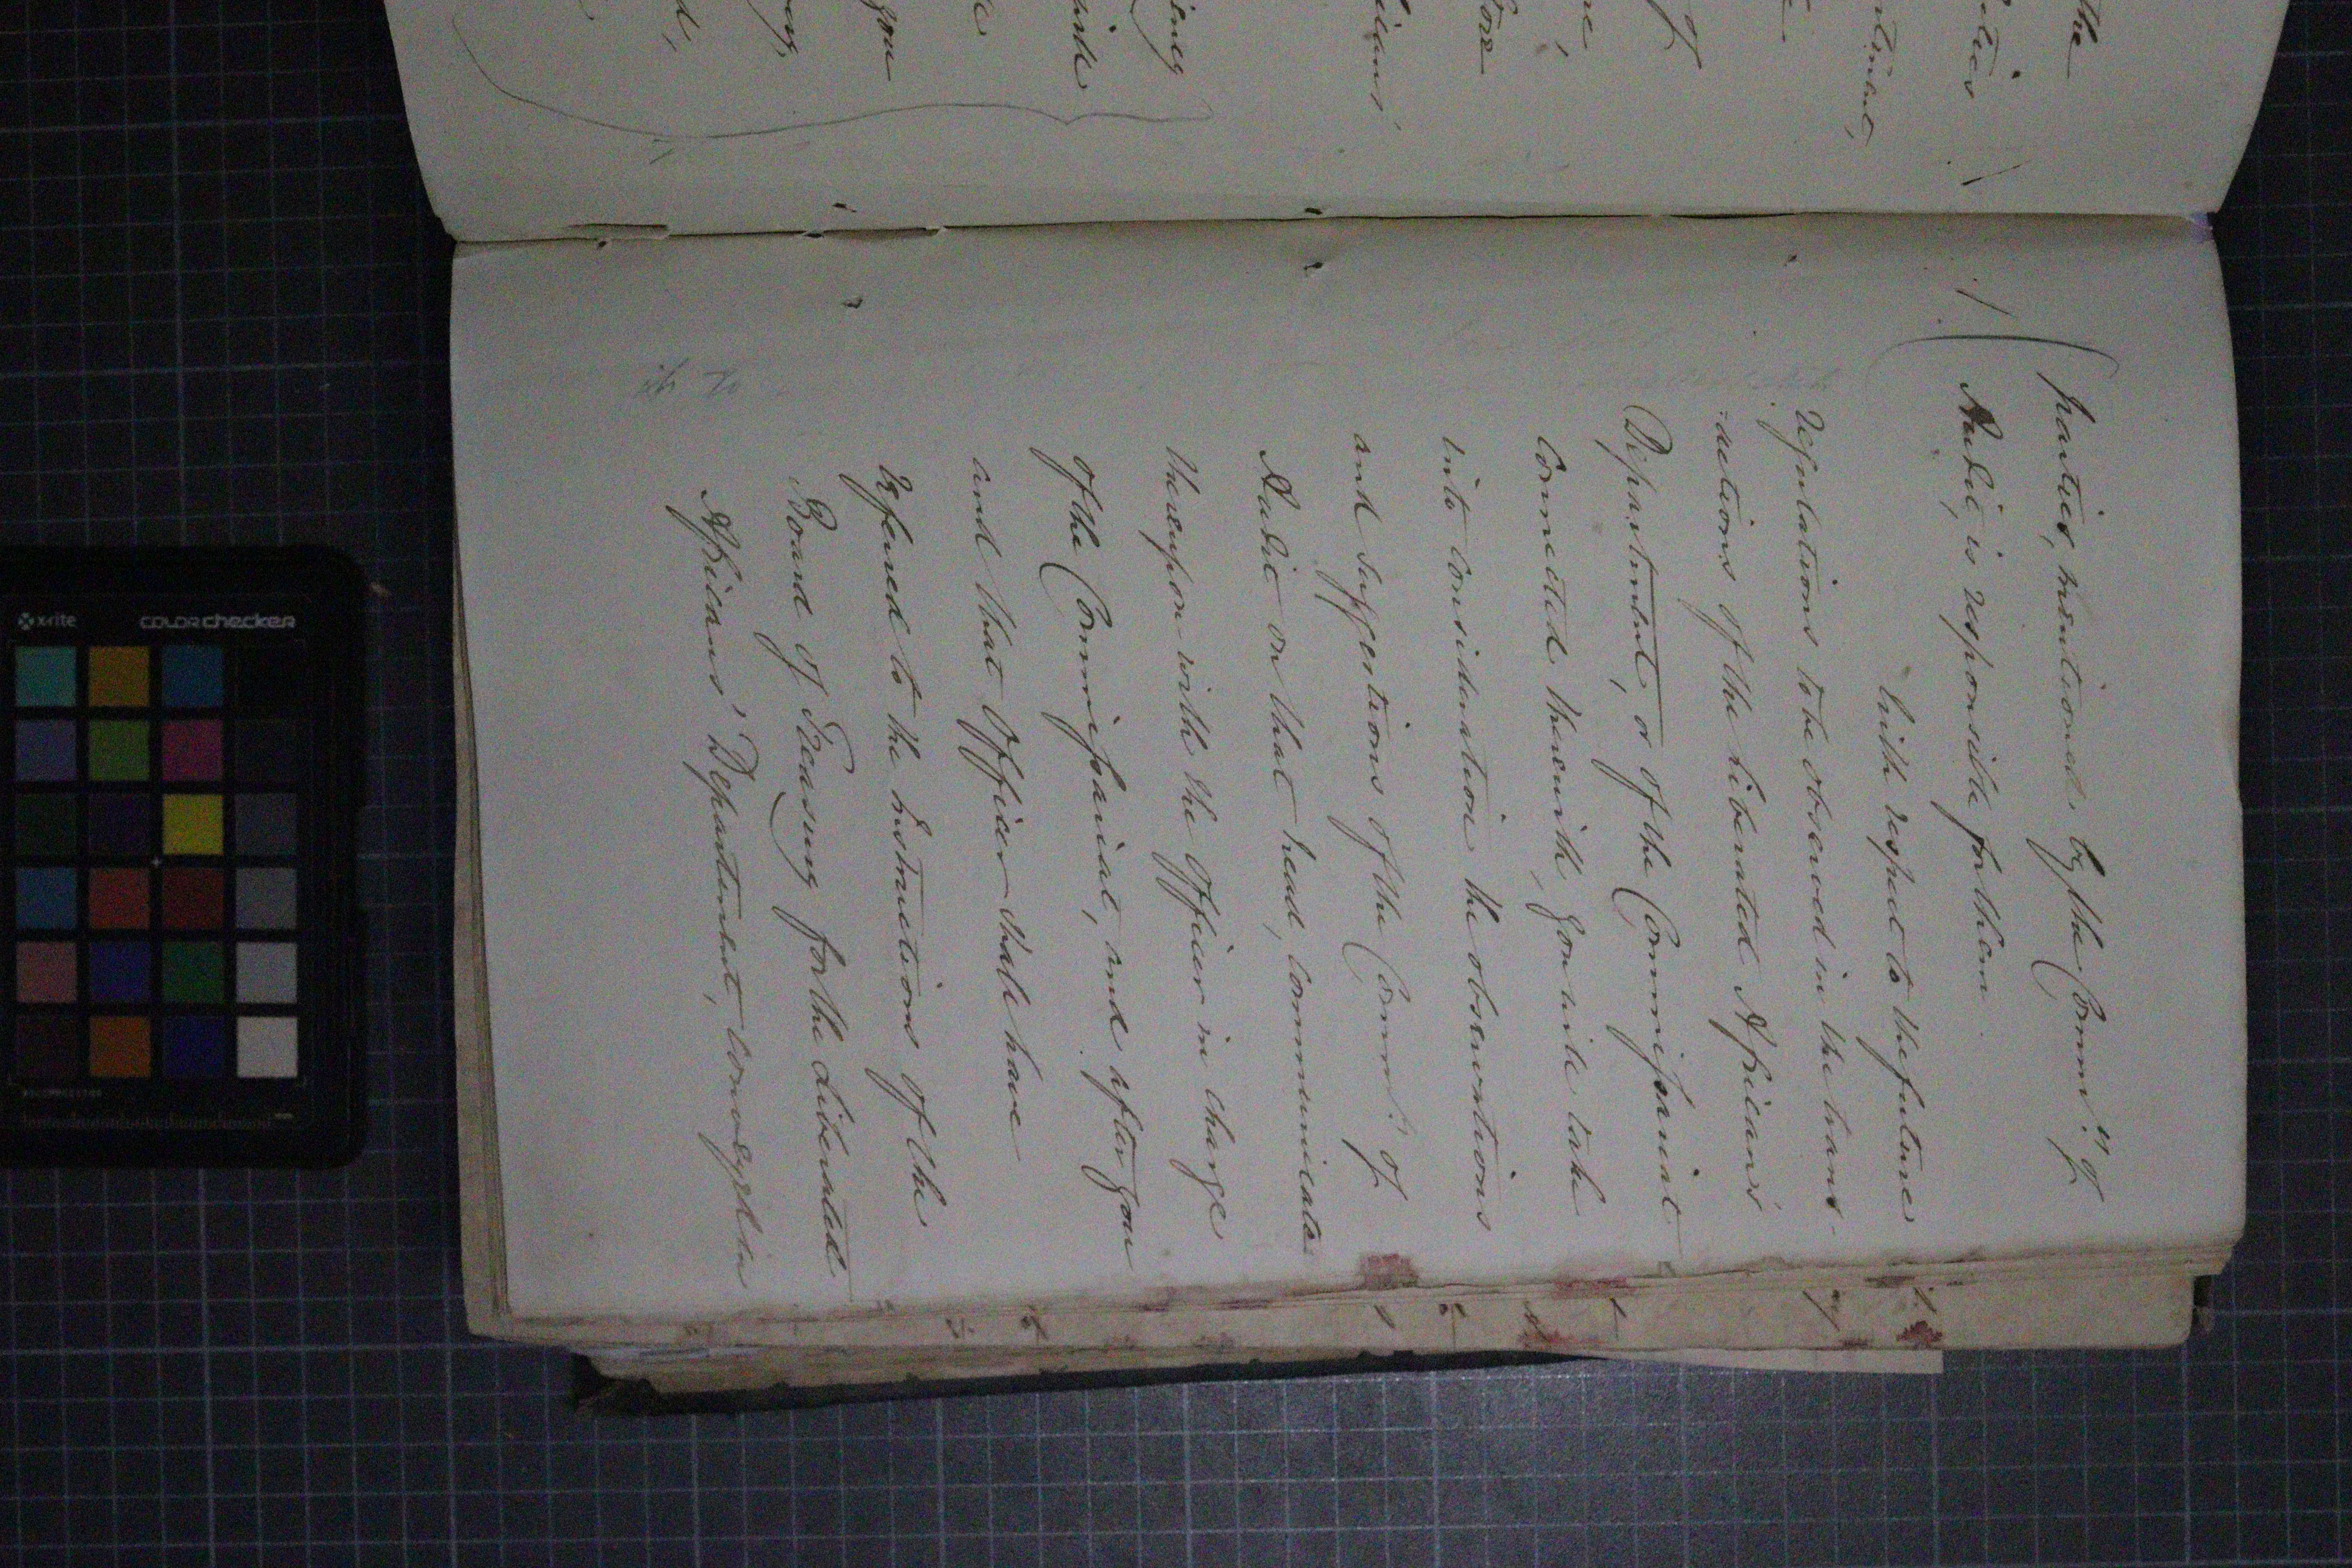 the
ities
artment,
of
ne
fore
ricans'
oney
you
d,
parties, mentioned by the Comm.rs of
Audit, is responsible for them.
With respect to the future
Regulations to be observed in the trans-
-actions of the Liberated Africans'
Department, or of the Commissariat
connected therewith, you will take
into consideration the observations
and suggestions of the Comm.rs of
Audit on that head, communicate
thereupon with the Officer in charge
of the Commissariat, and after you
and that Officer shall have
referred to the Instructions of the
Board of Treasury for the Liberated
Africans' Department, conveyed in
x-rite
colorchecker